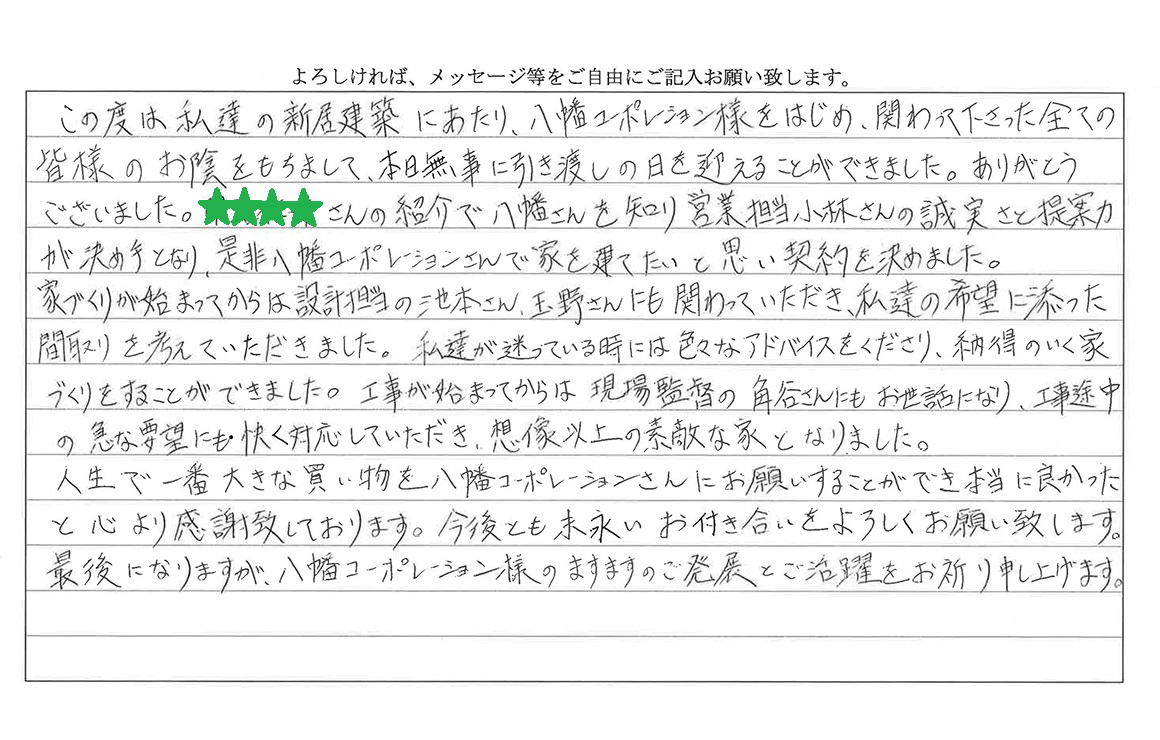 よろしければ、メッセージ等をご自由にご記入お願い致します。
この度は私達の新居建築にあたり、八幡コーポレション様をはじめ、関わって下さった全ての
皆様のお陰をもちまして、本日無事に引き渡しの日を迎えることができました。ありがとう
ございました。★★★★さんの紹介で八幡さんを知り営業担当小林さんの誠実さと提案力
が決め手となり、是非八幡コーポレションさんで家を建てたいと思い契約を決めました。
家づくりが始まってからは設計担当の池本さん、玉野さんにも関わっていただき、私達の希望に添った
間取りを考えていただきました。私達が迷っている時には色々なアドバイスをくださり、納得のいく家
づくりをすることができました。工事が始まってからは現場監督の角谷さんにもお世話になり、工事途中
の急な要望にも快く対応していただき、想像以上の素敵な家となりました。
人生で一番大きな買い物を八幡コーポレーションさんにお願いすることができ本当に良かった
と心より感謝致しております。今後とも末永いお付き合いをよろしくお願い致します。
最後になりますが、八幡コーポレーション様のますますのご発展とご活躍をお祈り申し上げます。